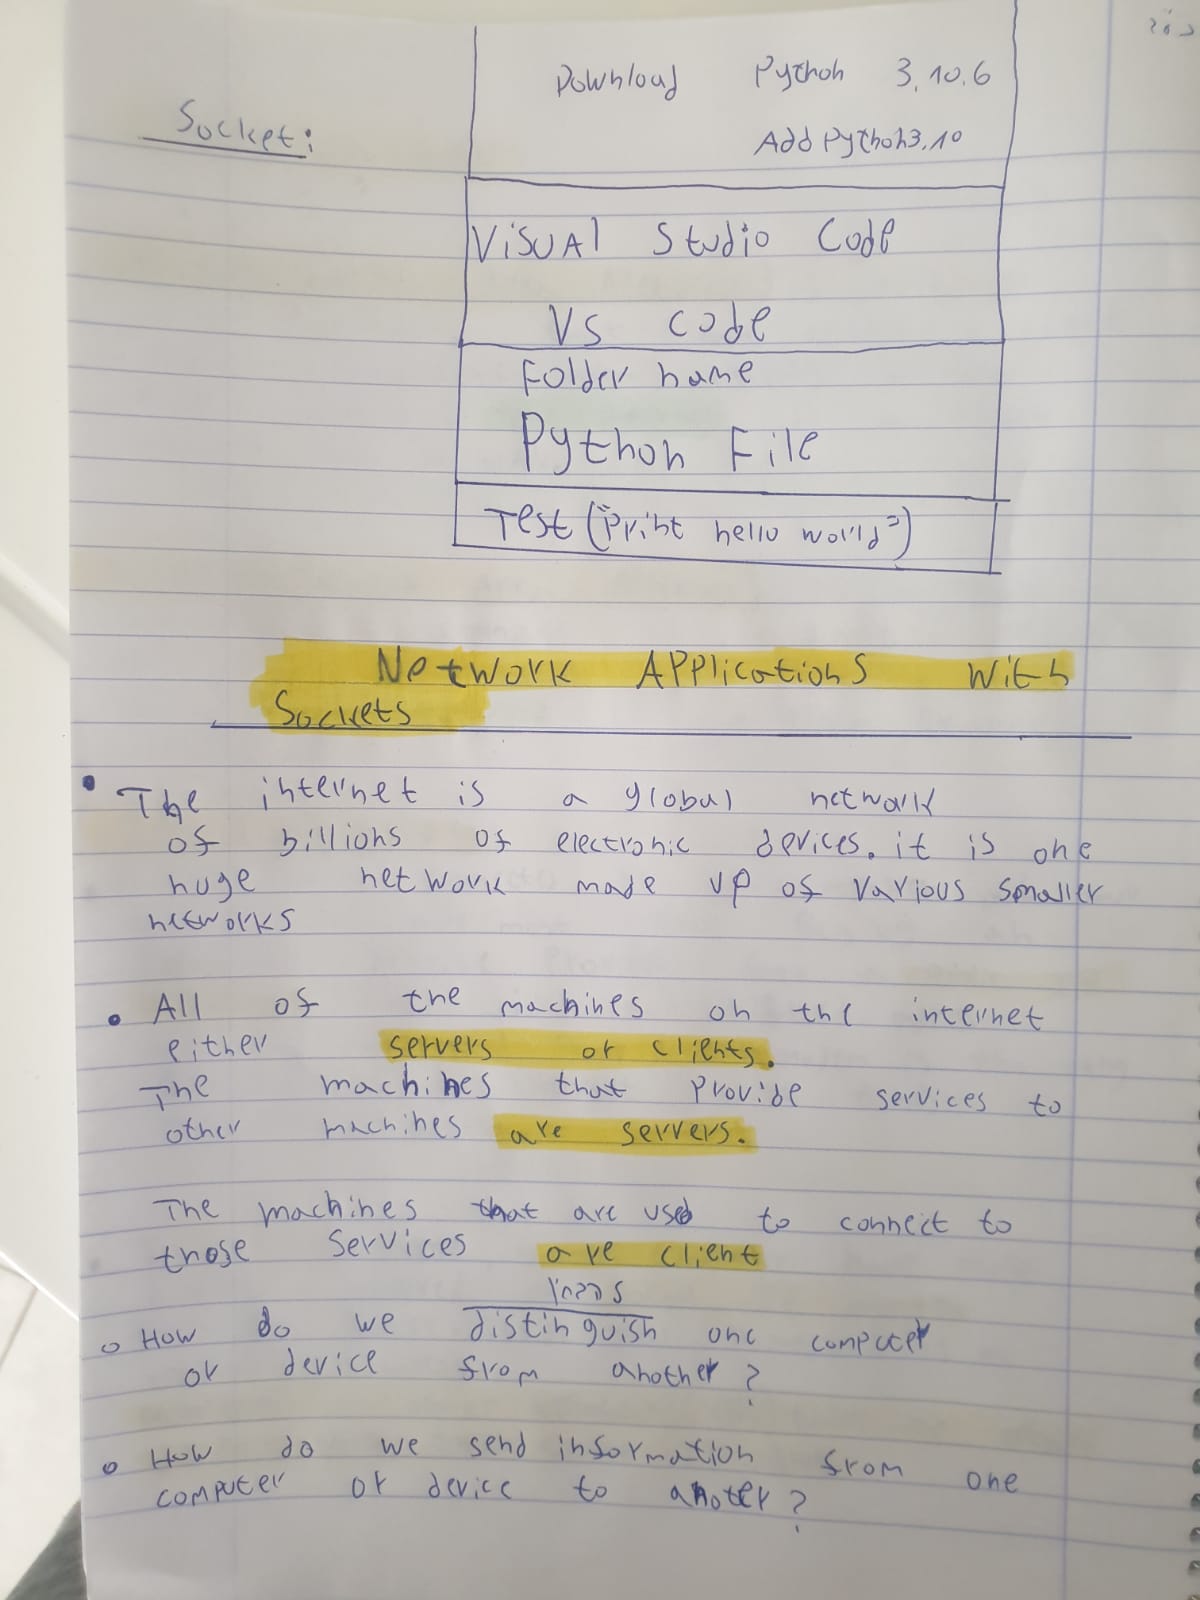 Socket:
Download Python 3.10.6
Add Python3.10
Visual Studio Code
VS code
Folder name
Python File
Test ("Print hello world")
Network Applications With
Sockets
• The internet is a global network
of billions of electronic devices. it is one
huge network made up of various smaller
networks
• All of the machines on the internet
either servers or clients.
The machines that Provide services to
other machines are servers.
The machines that are used to connect to
those Services are client
• How do we distinguish one computer
or device from another?
• How do we send information from one
computer or device to anoter?